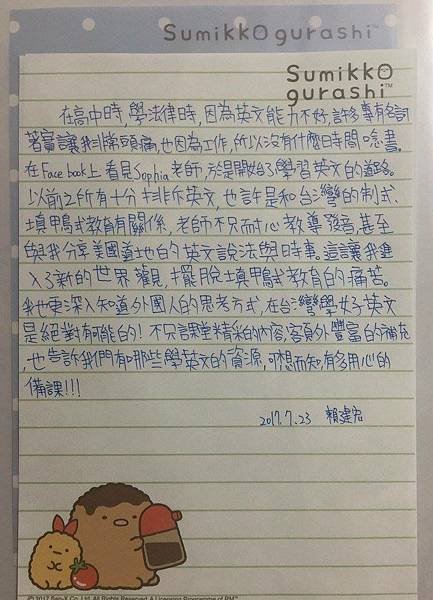 Sumikko gurashi™
Sumikko
gurashi™
在高中時,學法律時,因為英文能力不好,許多專有名詞
著實讓我非常頭痛,也因為工作,所以沒有什麼時間唸書.
在Facebook上看見Sophia老師,於是開始了學習英文的道路.
以前之所有十分排斥英文,也許是和台灣的制式、
填鴨式教育有關係,老師不只耐心教導發音,甚至
與我分享美國道地的英文說法與時事。這讓我進
入了新的世界觀,擺脫填鴨式教育的痛苦。
我也更深入知道外國人的思考方式,在台灣學好英文
是絕對有可能的!不只課堂精彩的內容,額外豐富的補充
,也告訴我們有哪些學英文的資源,可想而知,有多用心的
備課!!!
2017.7.23 賴建宏
© 2017 San-X Co., Ltd. All Rights Reserved.